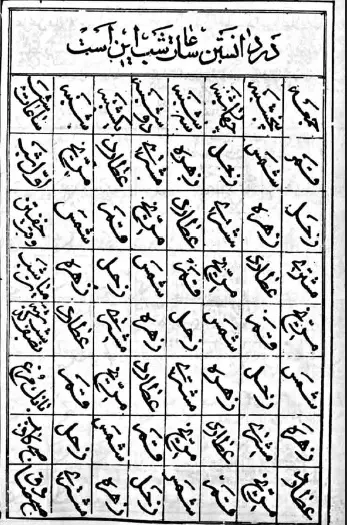 در دانستن ساعات شب این است
جمعه پنجشنبه چهارشنبه سه شنبه دوشنبه یکشنبه شنبه ساعات شب
قمر شمس زحل زهره مشتری عطارد مریخ اول شب
زحل زهره مشتری عطارد مریخ قمر شمس وقت خفتن
مشتری عطارد مریخ قمر شمس زحل زهره
مریخ قمر شمس زحل زهره مشتری عطارد
شمس زحل زهره مشتری عطارد مریخ قمر
زهره مشتری عطارد مریخ قمر شمس زحل صبح کاذب
عطارد مریخ قمر شمس زحل زهره مشتری صبح صادق